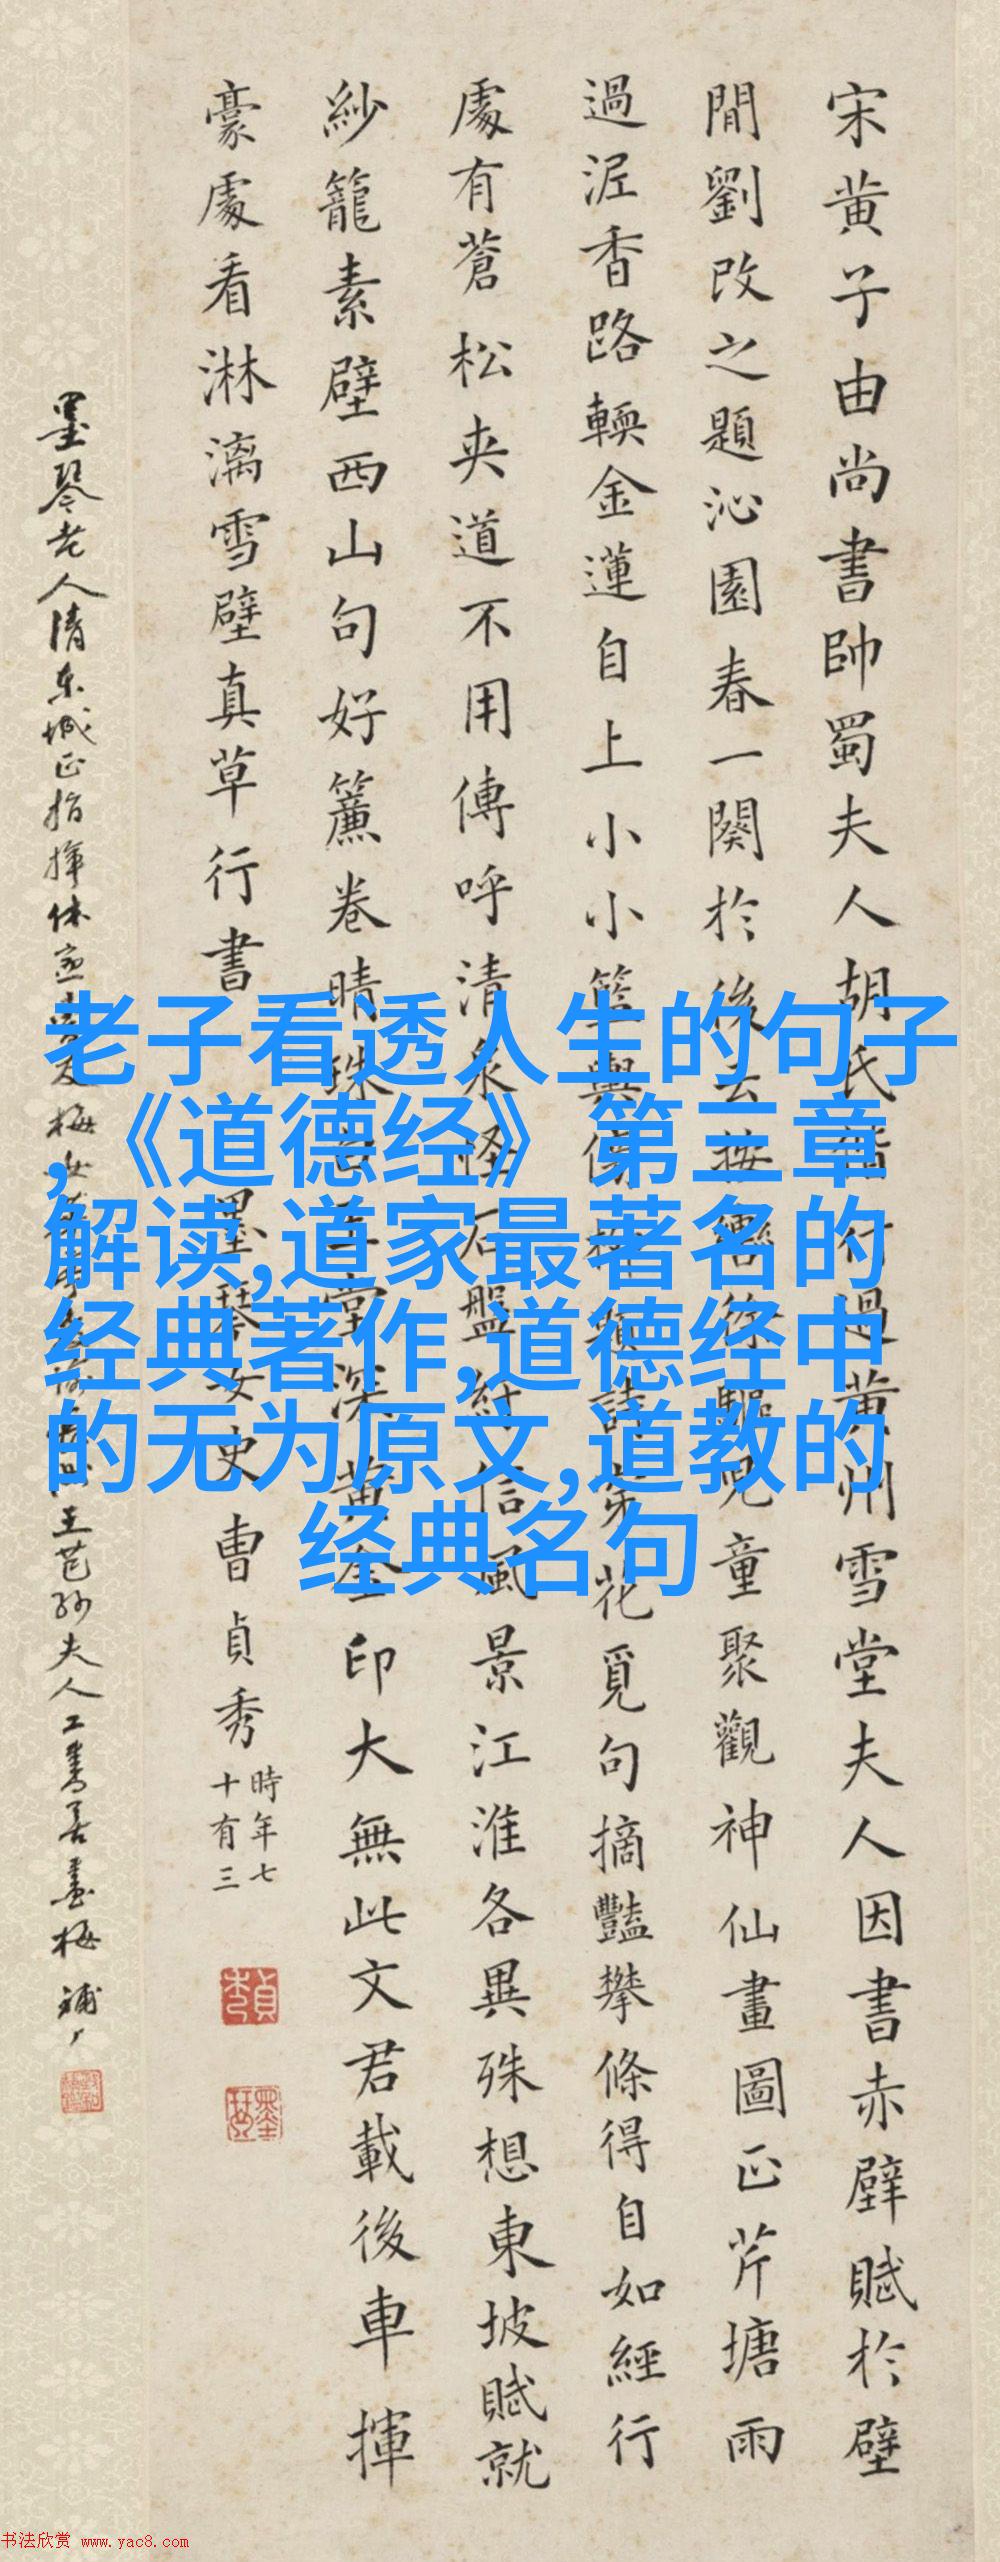 宋黄子由尚書帥蜀夫人胡氏
過黄州雪堂夫人因書赤壁賦於壁
間劉改之題沁園春一闋於後云按轡徐驅兒童聚觀神仙畫圖正芹塘雨
過泥香路輭金蓮自上小小籃輿傍
題詩
花覓句摘豔攀條得自如經行
處有蒼松夾道不用傳呼清泉怪石盤紆信風景江淮各異殊想東坡賦就
紗籠素壁西山句好簾卷晴珠
堂深黄金印大無此文君載後車揮
豪處看淋漓雪壁真草行書
墨琴女史曹貞秀時年七
十有三
墨琴老人清東城正指揮
王芑孫夫人工書善畫梅
老子看透人生的句子
,《道德经》第三章
解读,道家最著名的
经典著作,道德经中
的无为原文,道教的
经典名句
书法欣赏 www.yac8.com